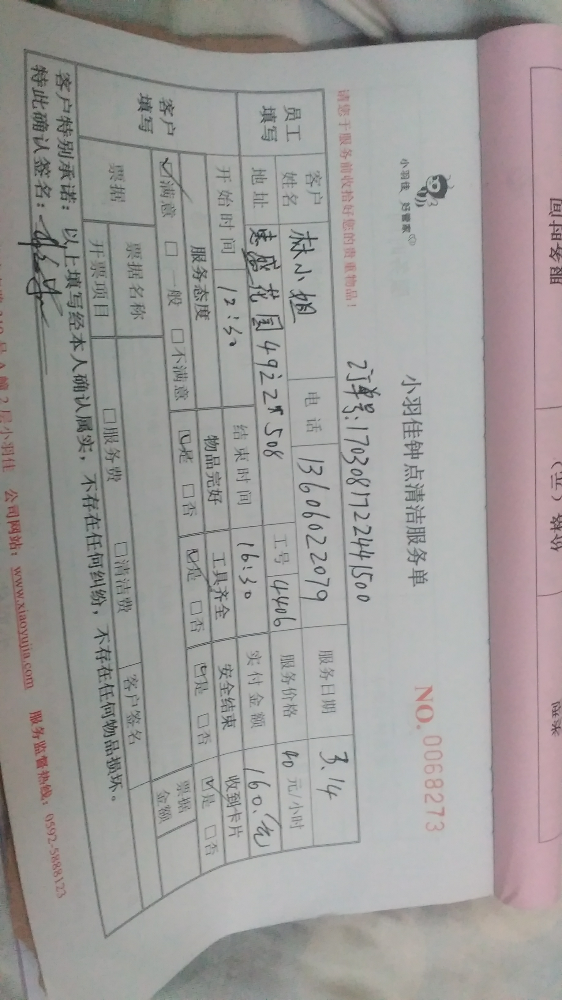 小羽佳 好管家
小羽佳钟点清洁服务单
NO. 0068273
订单号:17030817224411500
请您于服务前收拾好您的贵重物品!
员工填写 客户姓名 林小姐 电话 13606022079 服务日期 3.14
地址 花园49之2 508 工号 4406 服务价格 40 元/小时
开始时间 12:30 结束时间 16:30 实付金额 160.元
客户填写 服务态度 物品完好 工具齐全 安全结束 收到卡片
☑满意 □一般 □不满意 ☑是 □否 ☑是 □否 ☑是 □否 ☑是 □否
票据 票据名称 客户签名 票据金额
开票项目 □服务费 □清洁费
客户特别承诺: 以上填写经本人确认属实,不存在任何纠纷,不存在任何物品损坏。
特此确认签名:
2层小羽佳 公司网站: www.xiaoyujia.com 服务监督热线: 0592-5888123